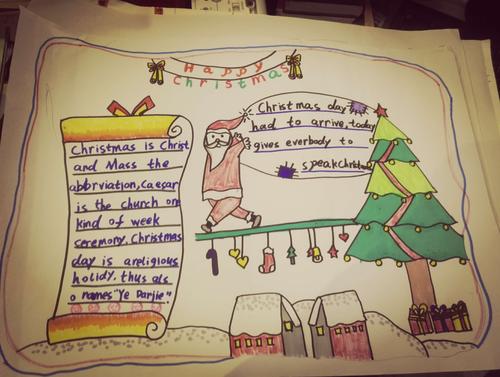 Happy
Christmas
Christmas is Christ
and Mass the
abbrviation, Caesar
is the church on
kind of week
ceremony. Christmas
day is areligious
holidy, thus als
o names "Ye Parjie"
Christmas day
had to arrive, today
gives everbody to
speakchristmas